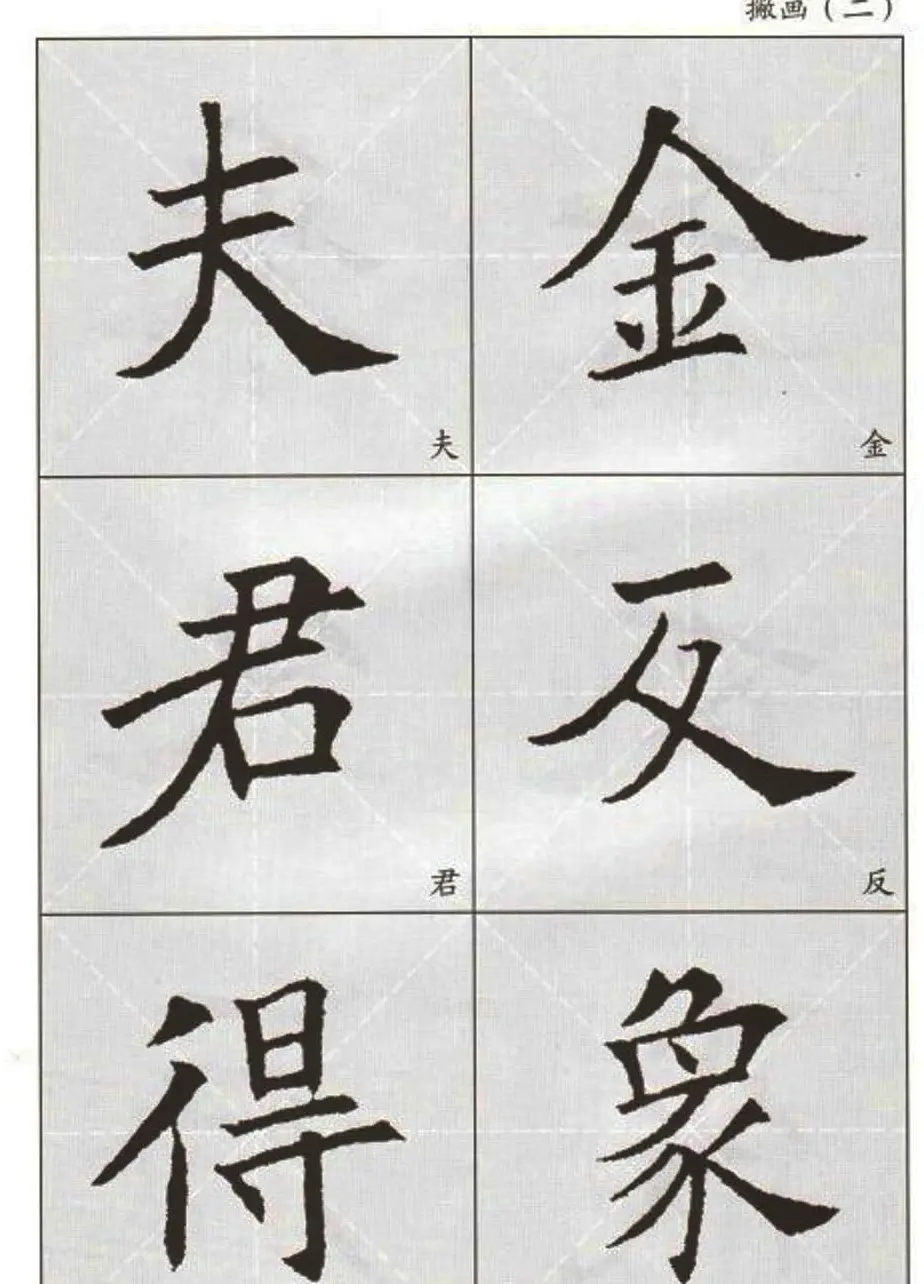 撇画（二）
夫 金
夫 金
君 反
君 反
得 象